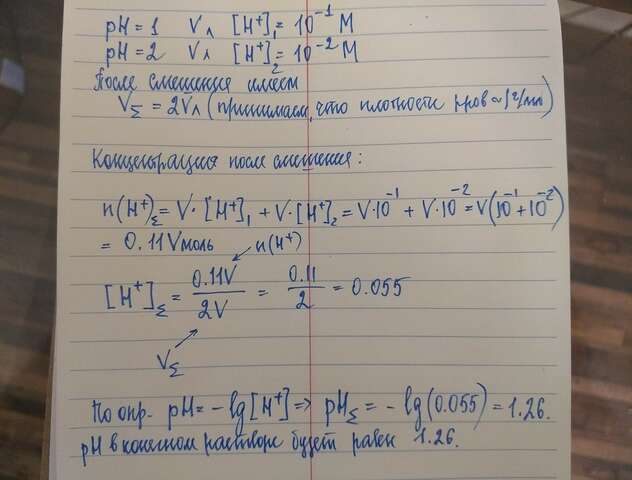 pH = 1 Vл [H⁺]₁ = 10⁻¹ M
pH = 2 Vл [H⁺]₂ = 10⁻² M
После смешения имеем
V_Σ = 2Vл (принимаем, что плотности р-ров ~ 1г/мл)
Концентрация после смешения:
n(H⁺)_Σ = V·[H⁺]₁ + V·[H⁺]₂ = V·10⁻¹ + V·10⁻² = V(10⁻¹+10⁻²)
= 0.11V моль
n(H⁺)
[H⁺]_Σ = 0.11V / 2V = 0.11 / 2 = 0.055
V_Σ
По опр. pH = -lg[H⁺] => pH_Σ = -lg(0.055) = 1.26.
pH в конечном растворе будет равен 1.26.